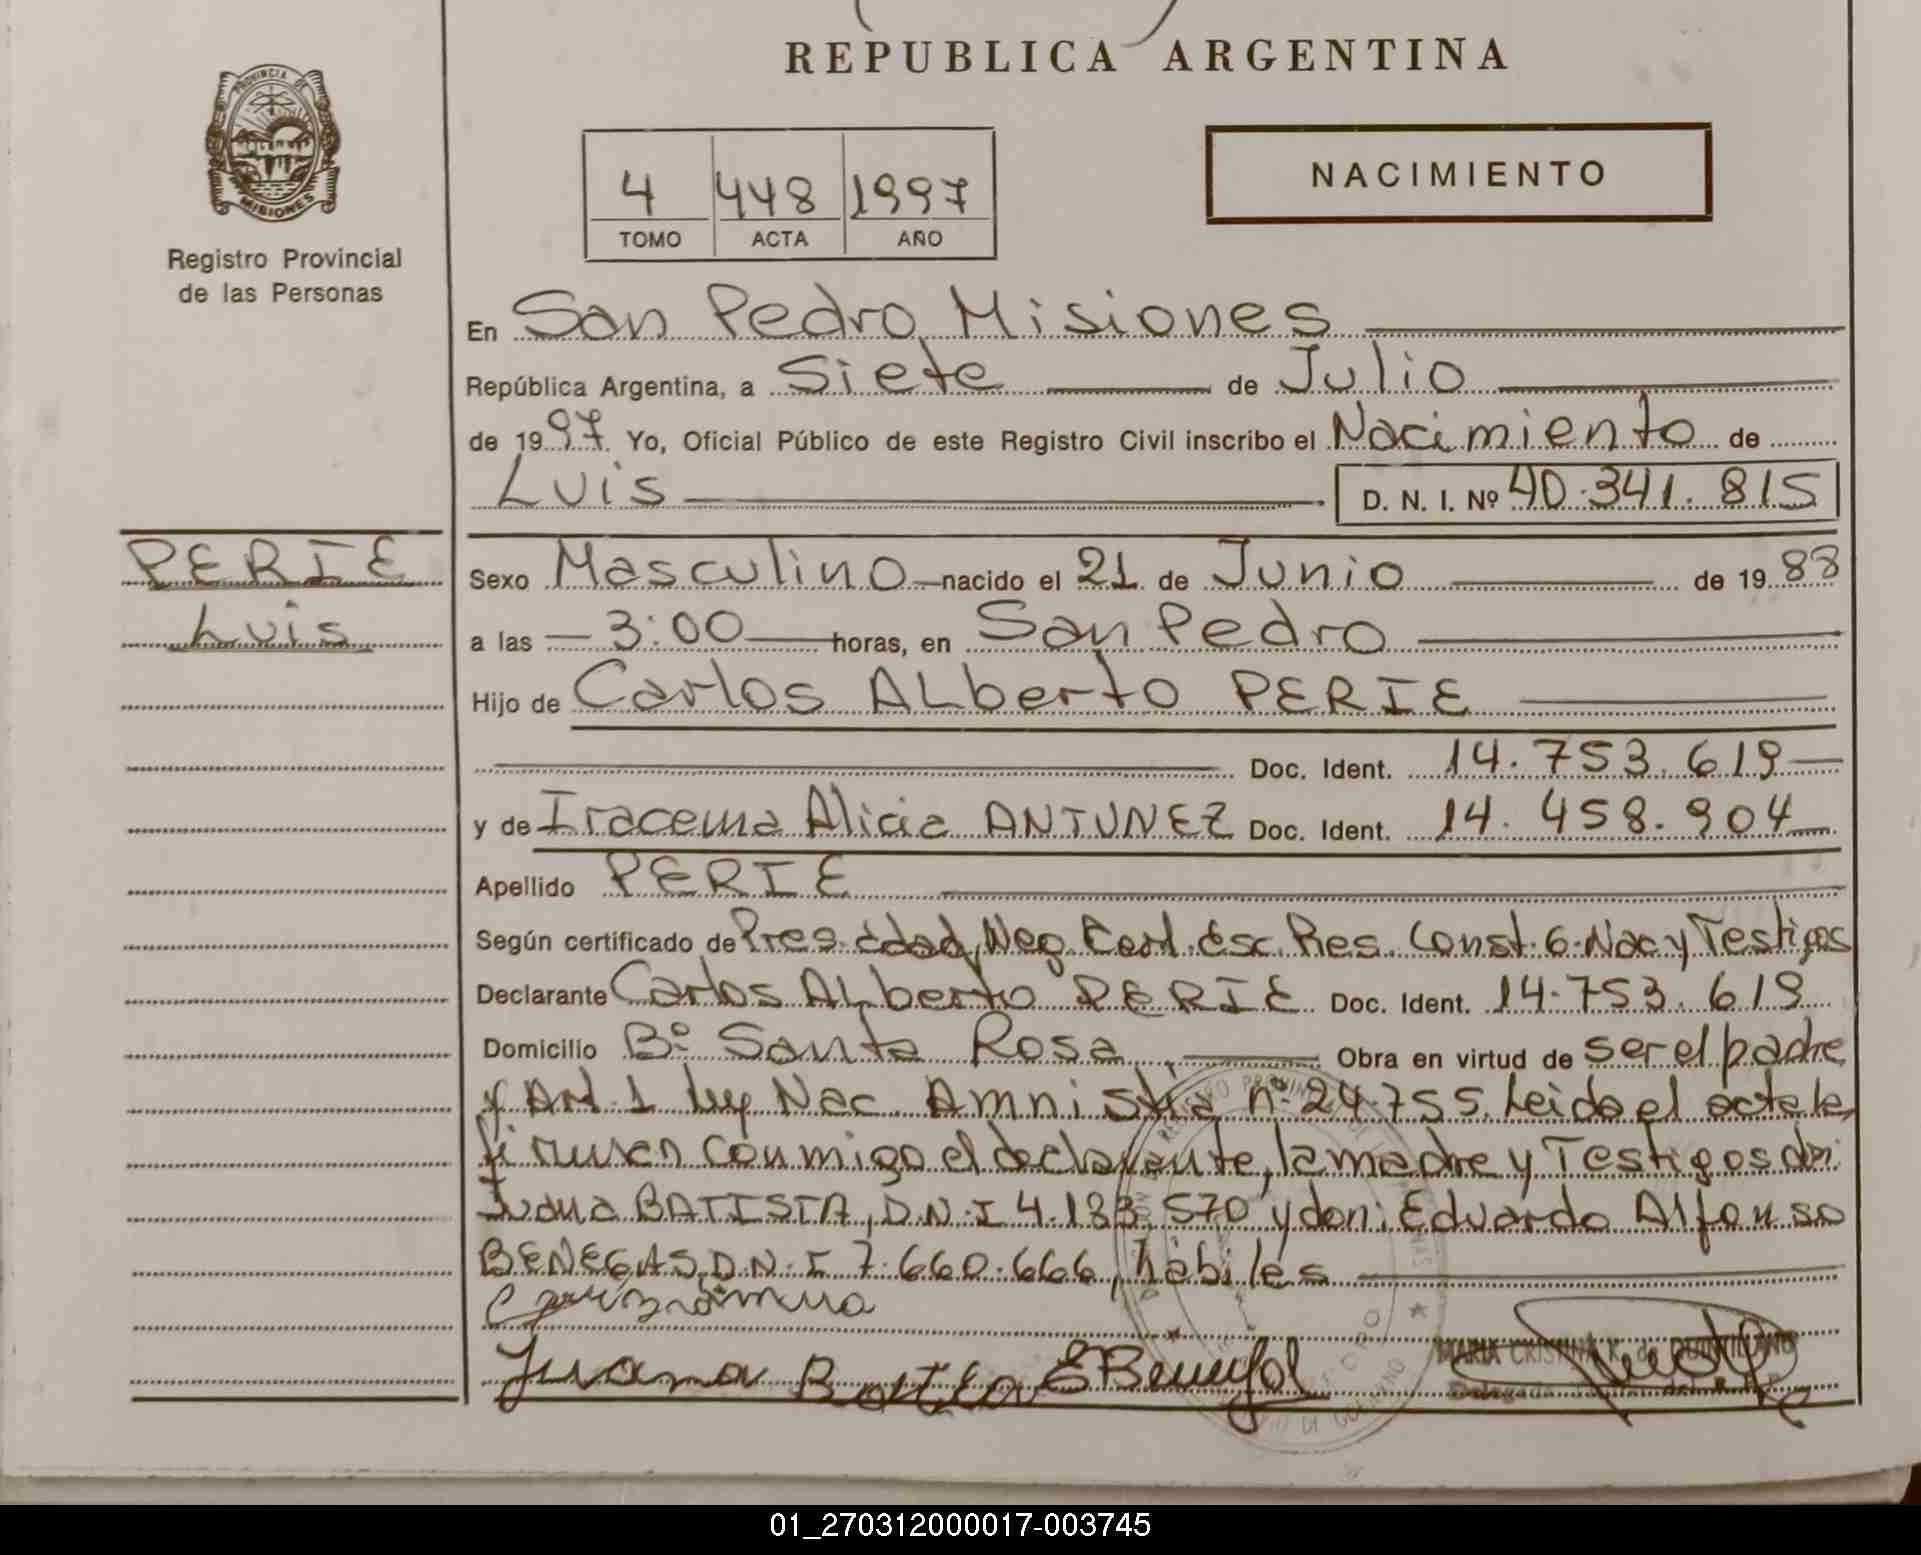 REPUBLICA ARGENTINA
PROVINCIA DE
MISIONES
Registro Provincial
de las Personas
4 448 1997
TOMO ACTA AÑO
NACIMIENTO
En San Pedro Misiones
República Argentina, a Siete de Julio
de 1997. Yo, Oficial Público de este Registro Civil inscribo el Nacimiento de
Luis D. N. I. Nº 40.341.815
PERIE
Luis
Sexo Masculino nacido el 21 de Junio de 1988
a las 3:00 horas, en San Pedro
Hijo de Carlos ALberto PERIE
Doc. Ident. 14.753.619
y de Iracema Alicia ANTUNEZ Doc. Ident. 14.458.904
Apellido PERIE
Según certificado de Pres. Edad, Neg. Cert. Esc. Res. Const. 6. Nac y Testigos
Declarante Carlos ALberto PERIE Doc. Ident. 14.753.619
Domicilio Bº Santa Rosa, Obra en virtud de ser el padre
y Art. 1 ley Nac Amnistia nº 24.755. Leida el acta la
firman conmigo el declarante, la madre y Testigos dñ:
Juana BATISTA, D.N.I 4.183.570 y don: Eduardo Alfonso
BENEGAS, D.N.I 7.660.666, hábiles
Juana
MARIA CRISTINA K. de QUINTILIANO
01_270312000017-003745